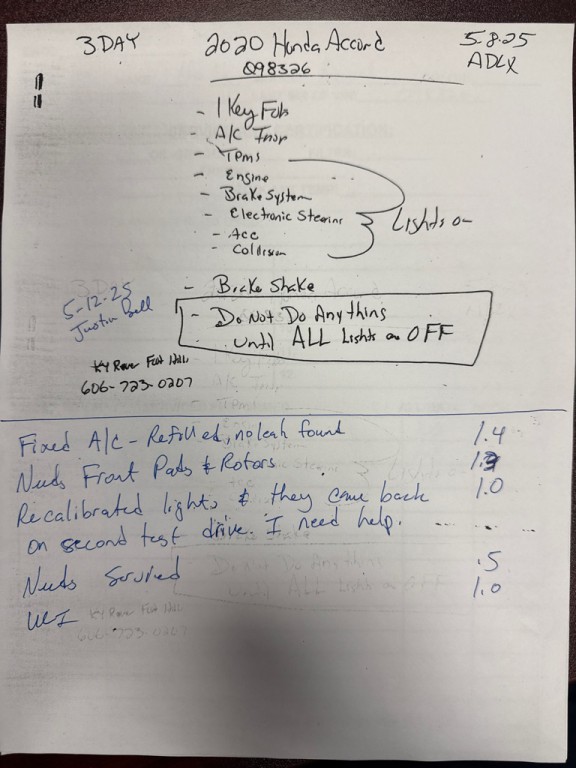 3 DAY
2020 Honda Accord
5.8.25
Q98326
ADLX
- 1 Key Fob
- A/C Inop
- TPMS
- Engine
- Brake System
- Electronic Steering
- Acc
- Collision
Lights on
- Brake Shake
- Do Not Do Anything
until ALL Lights are OFF
5-12-25
Justin Bell
606-723-0207
Fixed A/C - Refilled, no leak found 1.4
Needs Front Pads & Rotors
Recalibrated lights & they came back 1.0
on second test drive. I need help. ... ...
Needs Serviced .5
1.0